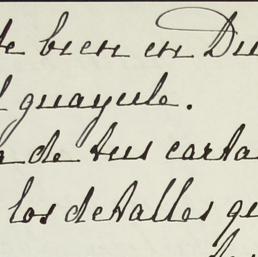 bien en Du
guayule.
de tus carta
los detalles qu